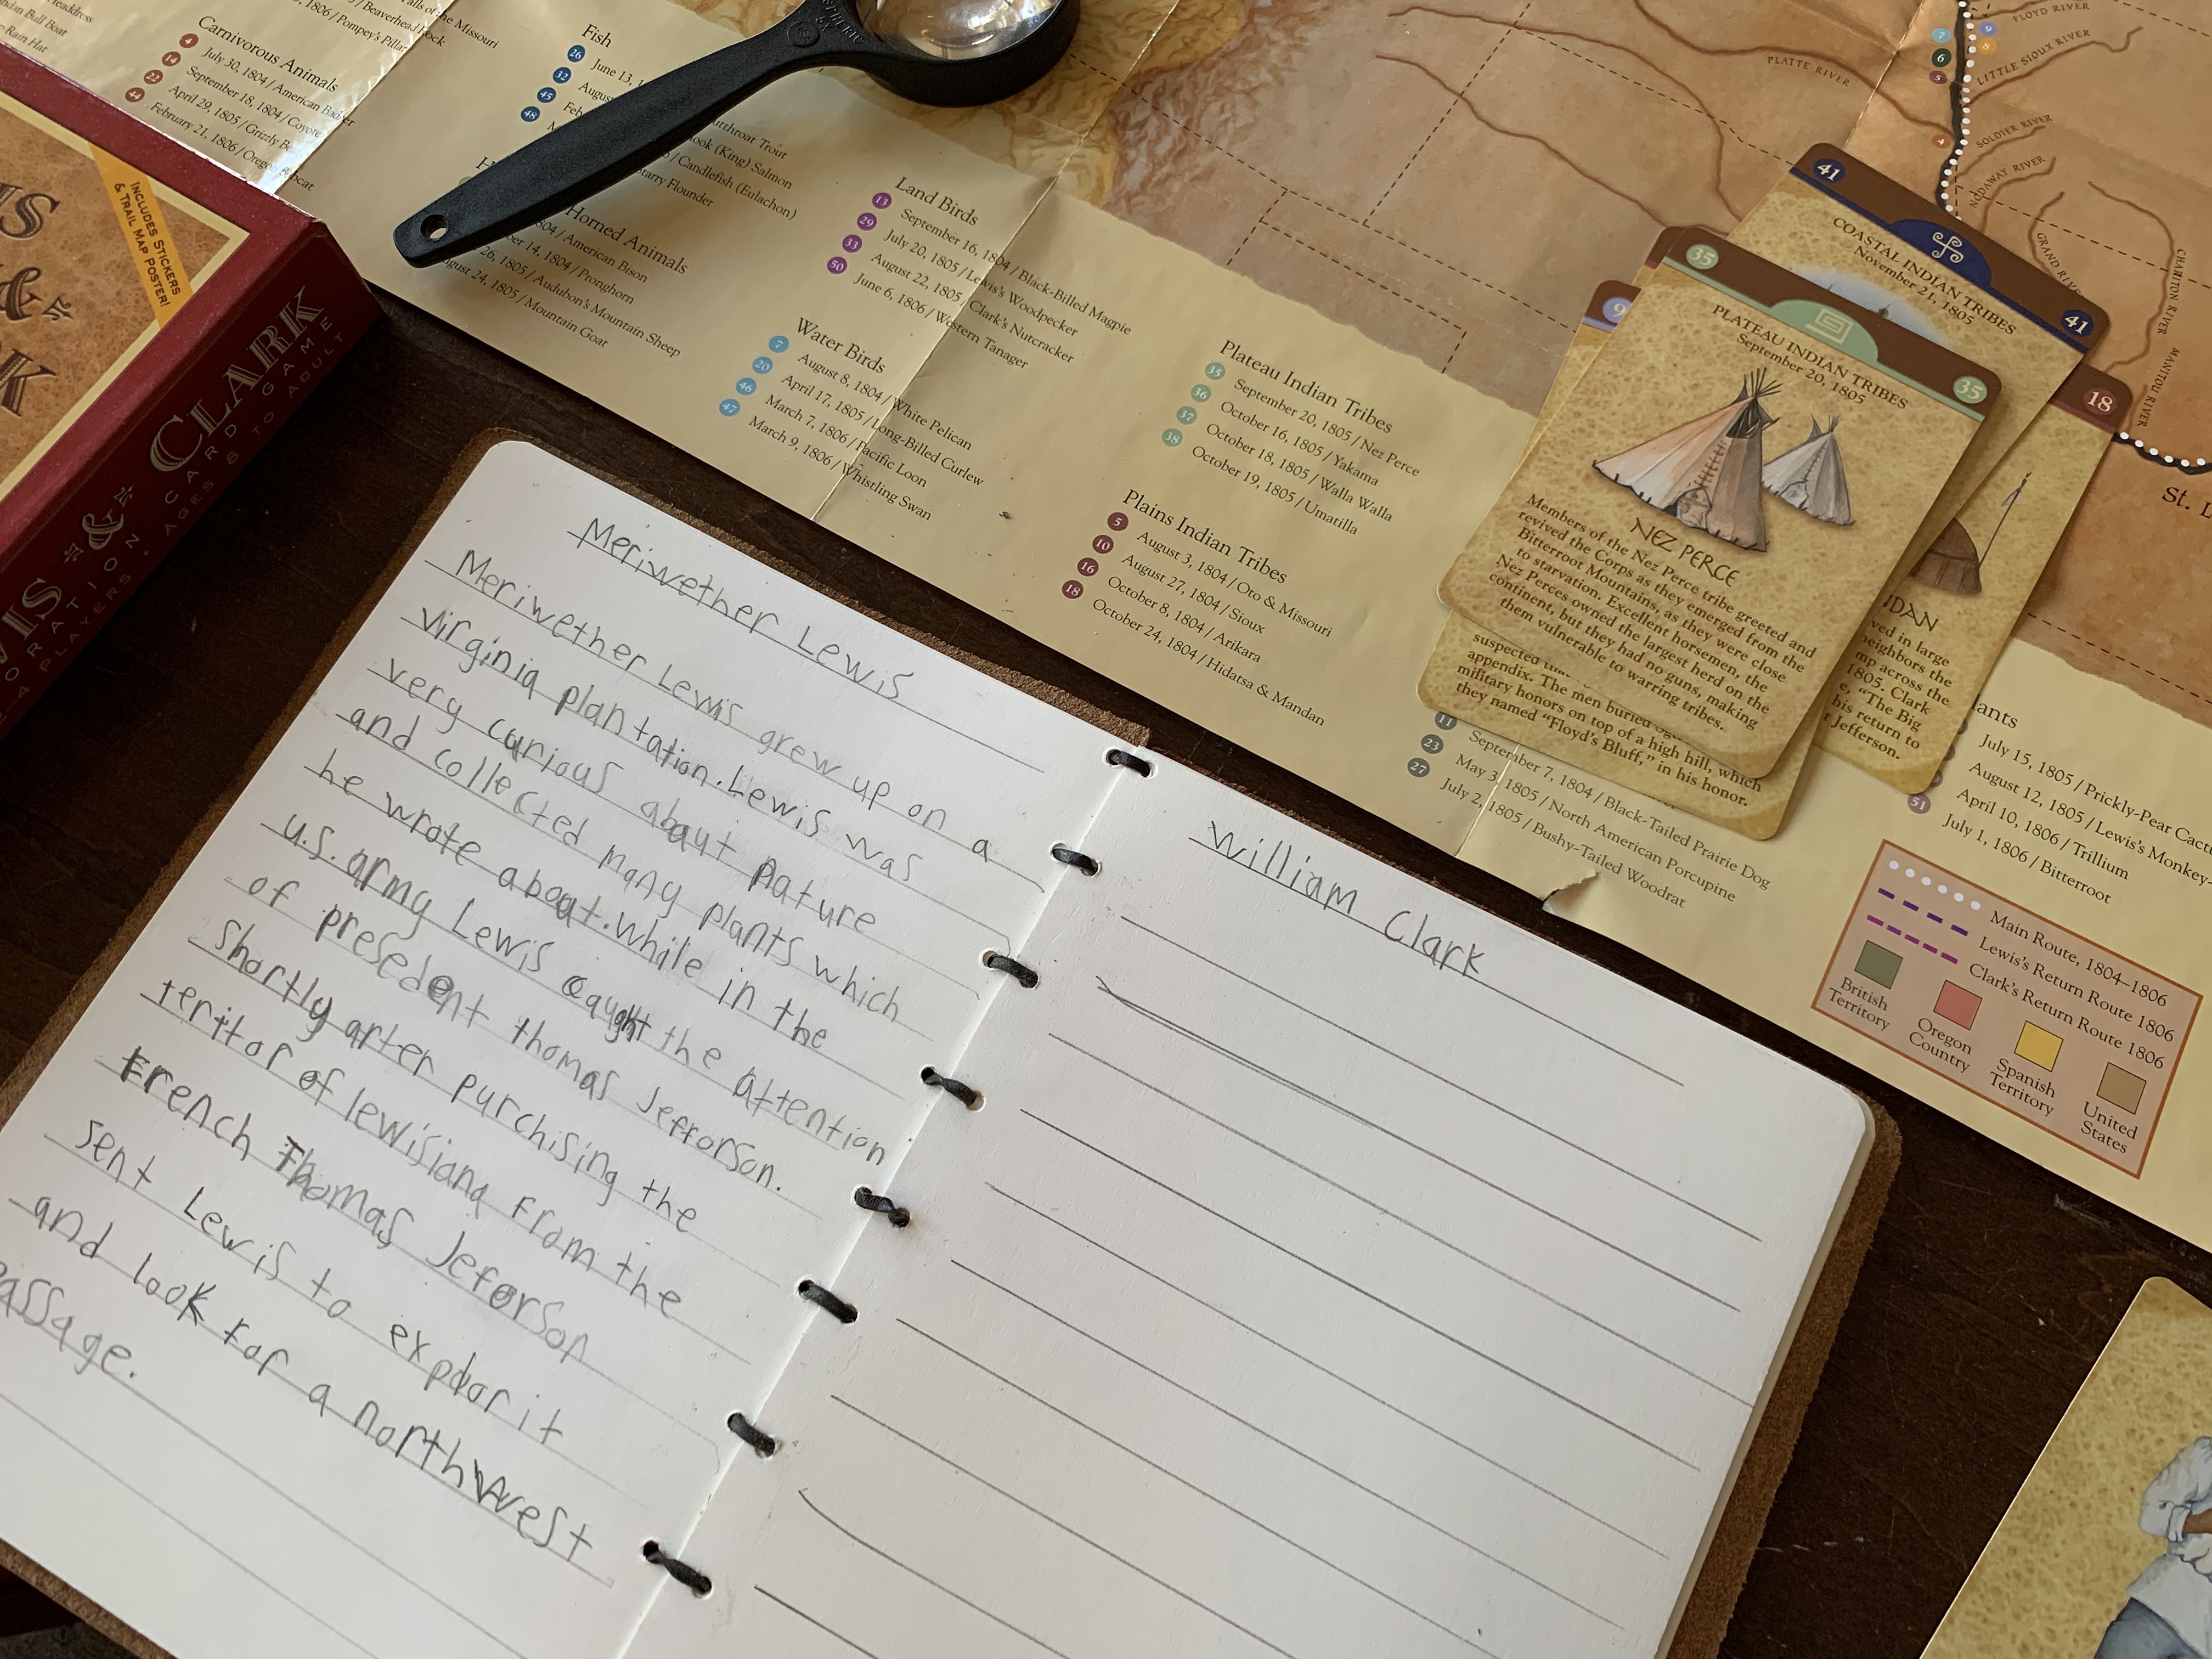 Carnivorous Animals
4 July 30, 1804 / American Badger
14 September 18, 1804 / Coyote
22 April 29, 1805 / Grizzly
44 February 21, 1806 /
Fish
26 June 13,
32
45
48
Cutthroat Trout
(King) Salmon
/ Candlefish (Eulachon)
Starry Flounder
Horned Animals
/ American Bison
14, 1804 / Pronghorn
26, 1805 / Audubon's Mountain Sheep
24, 1805 / Mountain Goat
Land Birds
13 September 16, 1804 / Black-Billed Magpie
29 July 20, 1805 / Lewis's Woodpecker
33 August 22, 1805 / Clark's Nutcracker
50 June 6, 1806 / Western Tanager
Water Birds
7 August 8, 1804 / White Pelican
20 April 17, 1805 / Long-Billed Curlew
46 March 7, 1806 / Pacific Loon
47 March 9, 1806 / Whistling Swan
Plateau Indian Tribes
35 September 20, 1805 / Nez Perce
36 October 16, 1805 / Yakama
37 October 18, 1805 / Walla Walla
38 October 19, 1805 / Umatilla
Plains Indian Tribes
5 August 3, 1804 / Oto & Missouri
10 August 27, 1804 / Sioux
16 October 8, 1804 / Arikara
18 October 24, 1804 / Hidatsa & Mandan
11 September 7, 1804 / Black-Tailed Prairie Dog
23 May 3, 1805 / North American Porcupine
27 July 2, 1805 / Bushy-Tailed Woodrat
July 15, 1805 / Prickly-Pear
August 12, 1805 / Lewis's Monkey-
51 April 10, 1806 / Trillium
July 1, 1806 / Bitterroot
Main Route, 1804–1806
Lewis's Return Route 1806
Clark's Return Route 1806
British
Territory
Oregon
Country
Spanish
Territory
United
States
PLATTE RIVER
FLOYD RIVER
LITTLE SIOUX RIVER
SOLDIER RIVER
NODAWAY RIVER
GRAND RIVER
CHARITON RIVER
MANITOU RIVER
St.
41
COASTAL INDIAN TRIBES
November 21, 1805
41
18
35
PLATEAU INDIAN TRIBES
September 20, 1805
35
NEZ PERCE
Members of the Nez Perce tribe greeted and
revived the Corps as they emerged from the
Bitterroot Mountains, as they were close
to starvation. Excellent horsemen, the
Nez Perces owned the largest herd on the
continent, but they had no guns, making
them vulnerable to warring tribes.
suspected
appendix. The men buried
military honors on top of a high hill, which
they named “Floyd's Bluff,” in his honor.
in large
neighbors the
across the
1805. Clark
“The Big
his return to
Jefferson.
INCLUDES STICKERS
& TRAIL MAP POSTER!
&
& CLARK
CARD GAME
AGES 8 TO ADULT
PLAYERS
Meriwether Lewis
Meriwether Lewis grew up on a
virginia plantation. Lewis was
very curious about nature
and collected many plants which
he wrote about. While in the
u.s. army Lewis caught the attention
of presedent thomas Jefforson.
Shortly after purchising the
teritor of lewisiana from the
French Thomas Jeforson
sent Lewis to explor it
and look for a northwest
passage.
William Clark